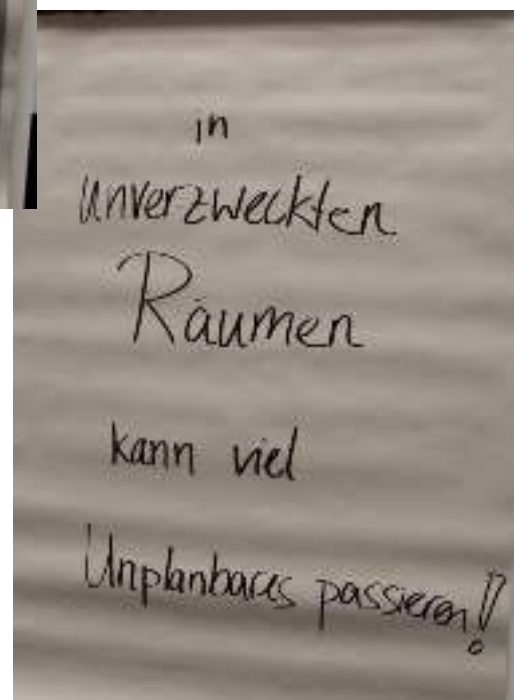 in
unverzweckten
Räumen
kann viel
Unplanbares passieren!